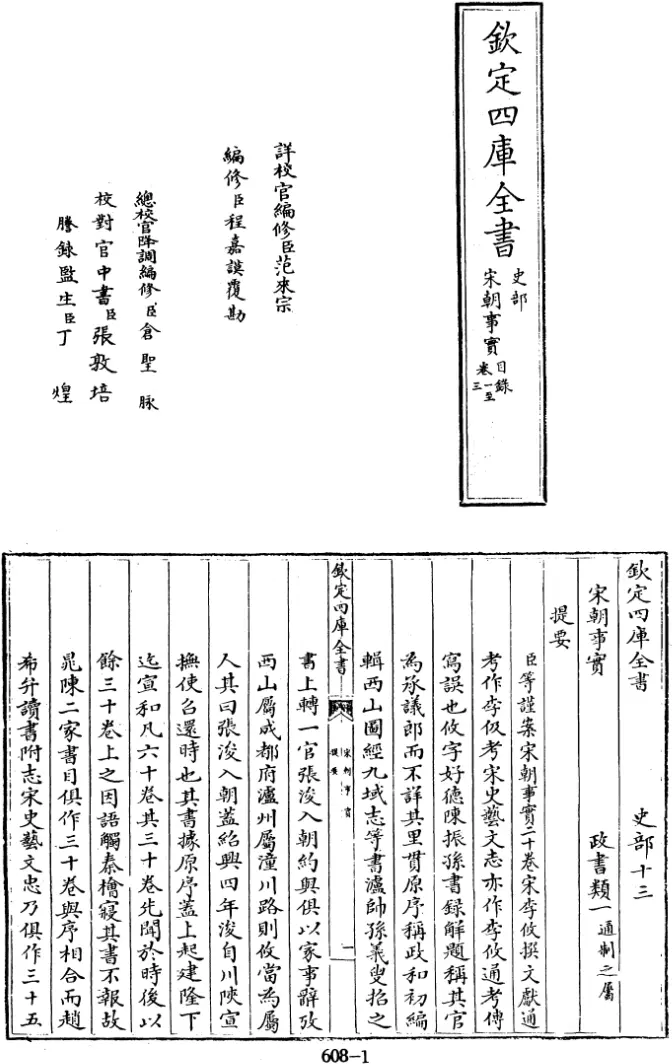 欽定四庫全書
史部
宋朝事實
目錄
卷一至
三
詳校官編修臣范來宗
編修臣程嘉謨覆勘
總校官降調編修臣倉聖脉
校對官中書臣張敦培
謄錄監生臣丁煌
欽定四庫全書
史部十三
宋朝事實
政書類一通制之屬
提要
臣等謹案宋朝事實二十卷宋李攸撰文獻通
考作李伋考宋史藝文志亦作李攸通考傳
寫誤也攸字好德陳振孫書録解題稱其官
為承議郎而不詳其里貫原序稱政和初編
輯西山圖經九域志等書瀘帥孫羲叟招之
欽定四庫全書
宋朝事實
提要
一
書上轉一官張浚入朝約與俱以家事辭攷
西山屬成都府瀘州屬潼川路則攸當為屬
人其曰張浚入朝蓋紹興四年浚自川陝宣
撫使召還時也其書據原序蓋上起建隆下
迄宣和凡六十卷其三十卷先聞於時後以
餘三十卷上之因語觸秦檜寢其書不報故
晁陳二家書目俱作三十卷與序相合而趙
希弁讀書附志宋史藝文忠乃俱作三十五
608-1